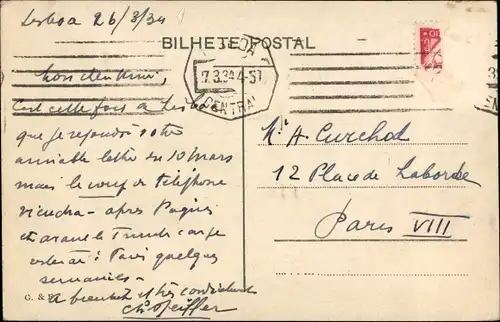 Lisboa 26/3/34
BILHETE POSTAL
7.3.34 4-5T
CENTRAL
Mon cher Ami,
C'est cette fois de Lisboa
que je réponds à votre
aimable lettre du 10 mars
mais le coup de téléphone
viendra - après Pâques
et avant le
: Dans quelques
semaines -
A bientôt et très cordialement
Ch. Pfeiffer
G. &
M. A. Curchod
12 Place de Laborde
Paris VIII